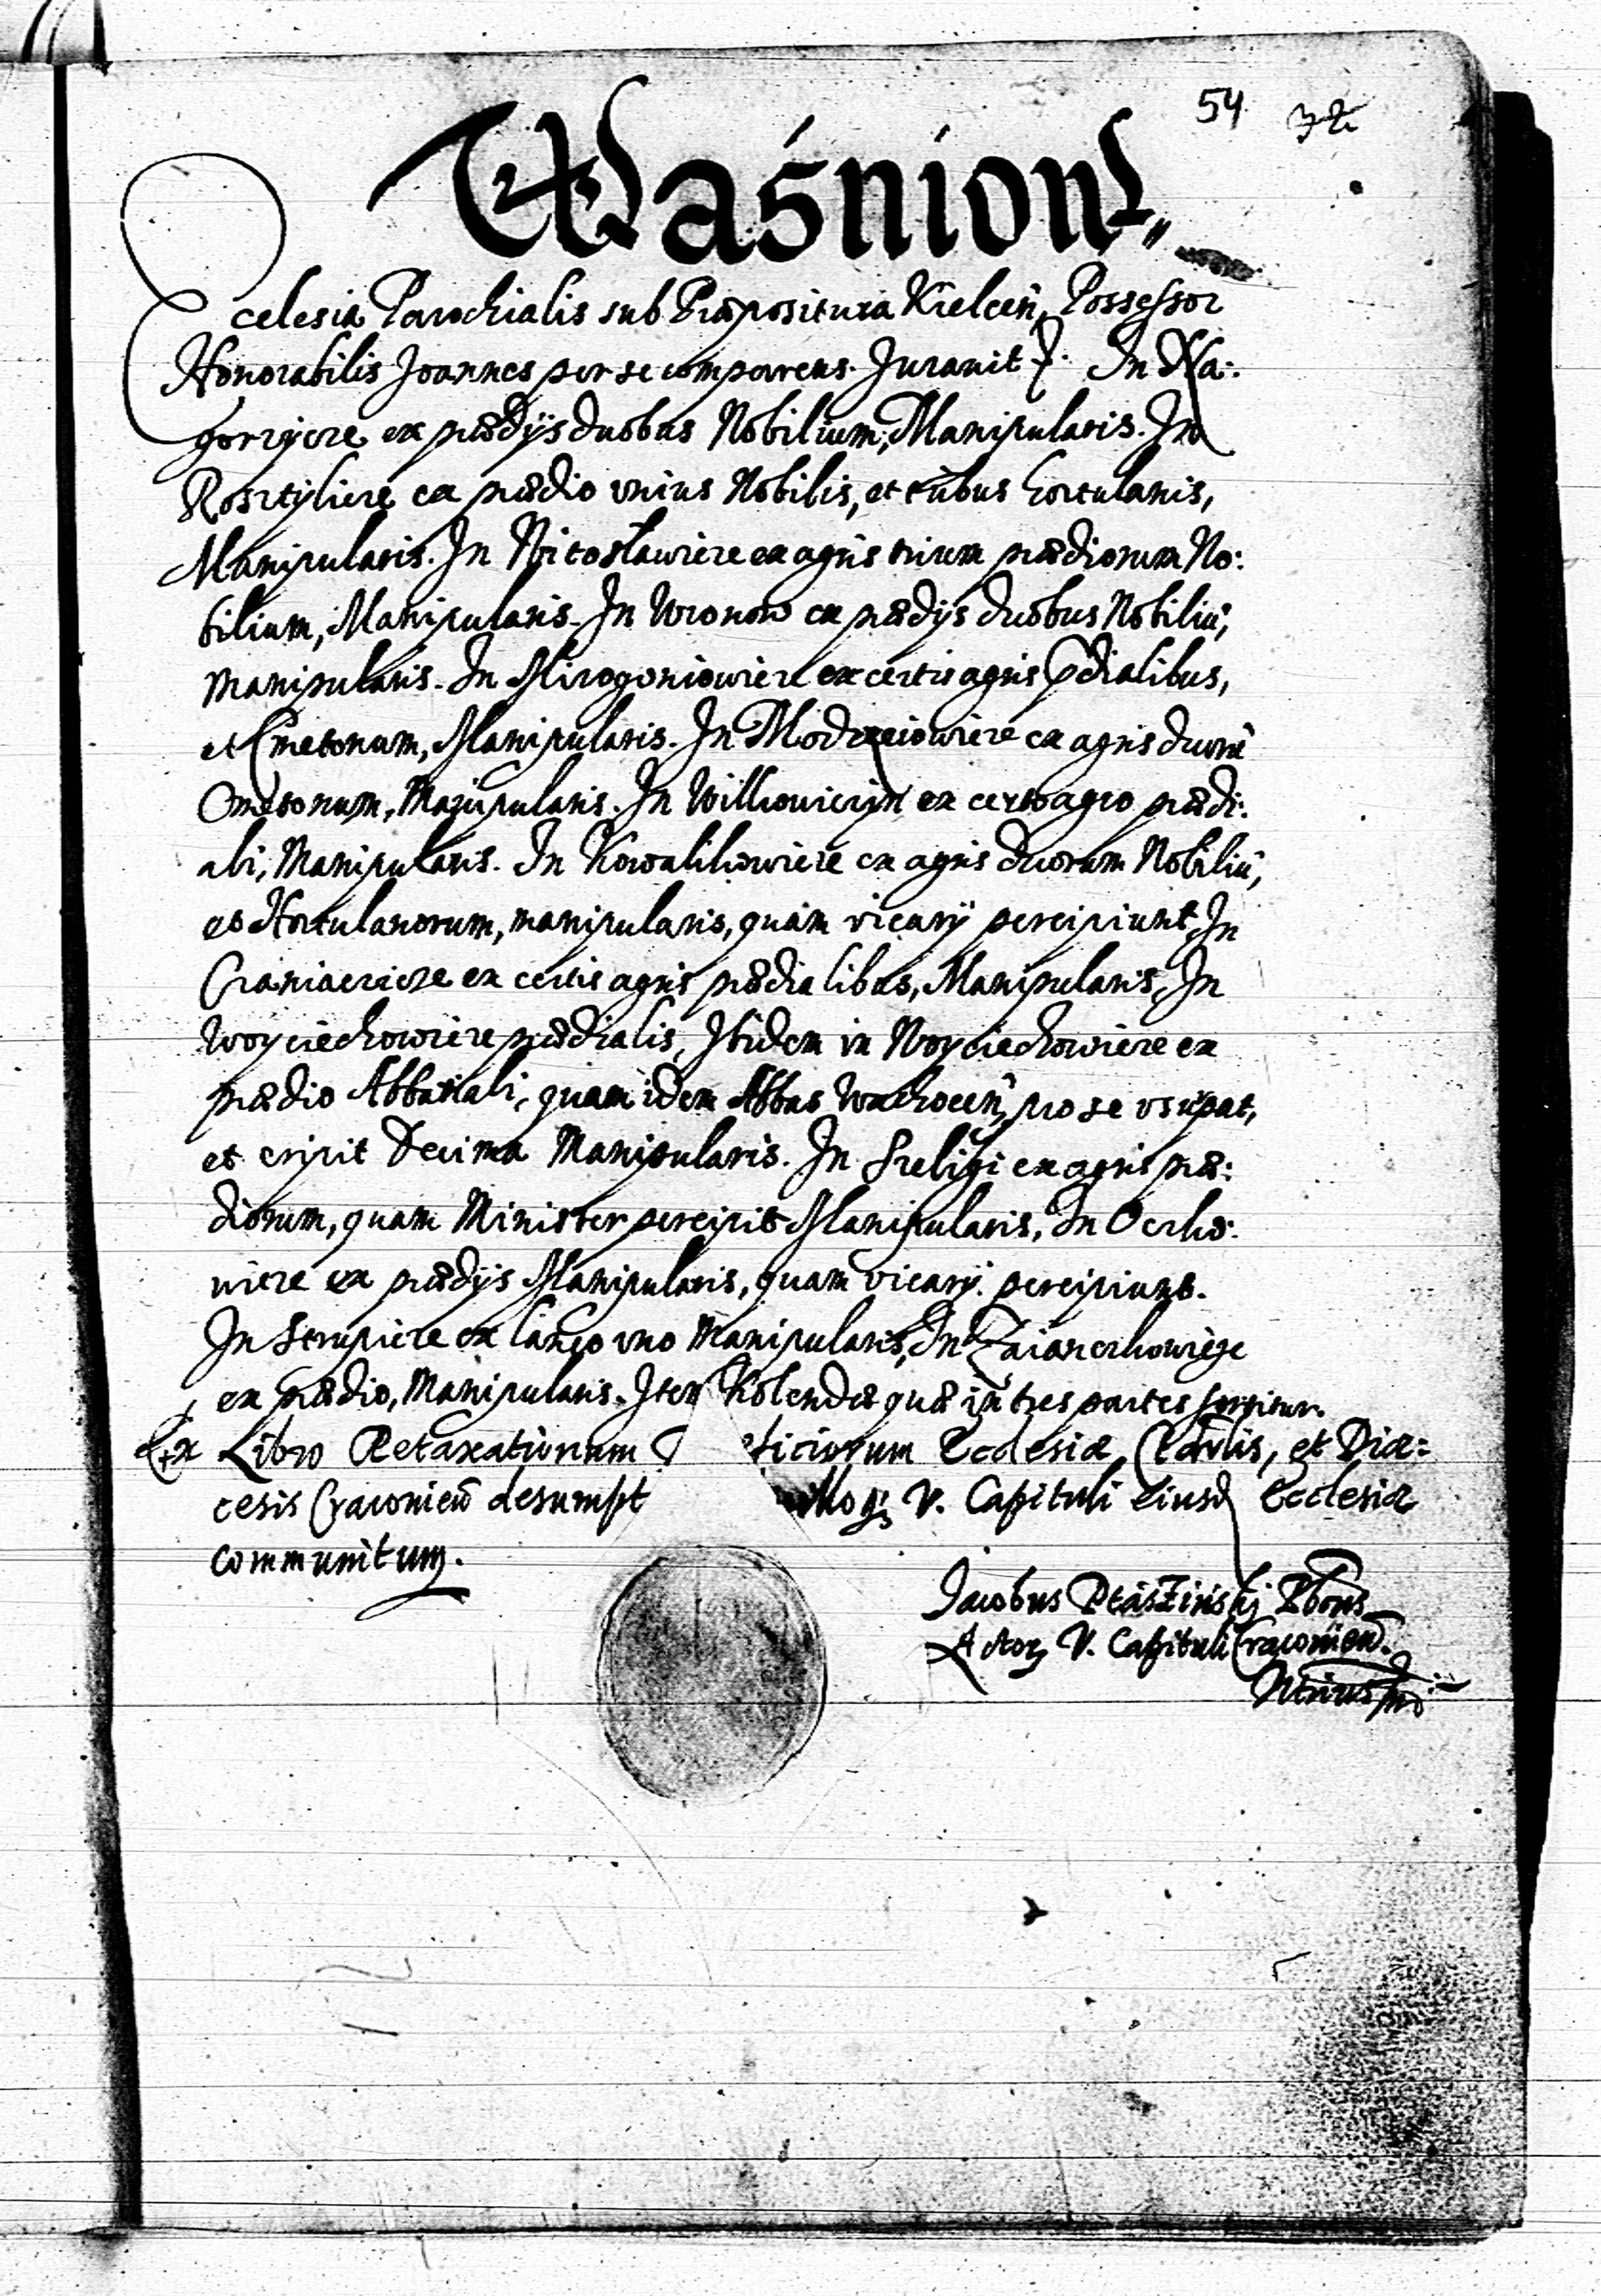 54
Waśniow
Ecclesia Parochialis sub Præpositura Kielceñ, Possessor
Honorabilis Joannes per se comparens. Jurauit In Na:
gorzycze ex prædijs duobus Nobilium, Manipularis. In
Rosztylicze ex prædio vnius Nobilis, et tribus hortulanis,
Manipularis. In Nitosławicze ex agris trium prædiorum No:
bilium, Manipularis. In Wronow ex prædijs duobus Nobiliũ,
Manipularis. In Mirogoniowicze ex certis agris pdialibus,
et Cmetonum, Manipularis. In Modrzeiowicze ex agris duorũ
Cmetonum, Manipularis. In Wilkowieczyn ex certo agro prædi:
ali, Manipularis. In Kowalkowicze ex agris duorum Nobiliũ,
et Hortulanorum, manipularis, quam vicarij percipiunt, In
ex certis agris prædialibus, Manipularis, In
Woyciechowicze prædialis, Ibidem in Woyciechowicze ex
prædio Abbatiali, quam idem Abbas Wachoceñ, pro se vsurpat,
et eripit Decima Manipularis. In Szeligi ex agris præ:
diorum, quam Minister percipit Manipularis, In Oczko:
wicze ex prædijs Manipularis, quam vicarij percipiunt.
In Strupicze ex laneo vno Manipularis, In Zaiaczkowicze
ex prædio, Manipularis. Item Kolenda quæ in tres partes
Ex Libro Retaxationum ficiorum Ecclesiæ Cathlis, et Diæ=
cesis Cracouieñ desumpt V. Capituli eiusd Ecclesiæ
communitum.
Jacobus Ptaszinskj
Actorꝝ V. Capituli Cracouieñ.